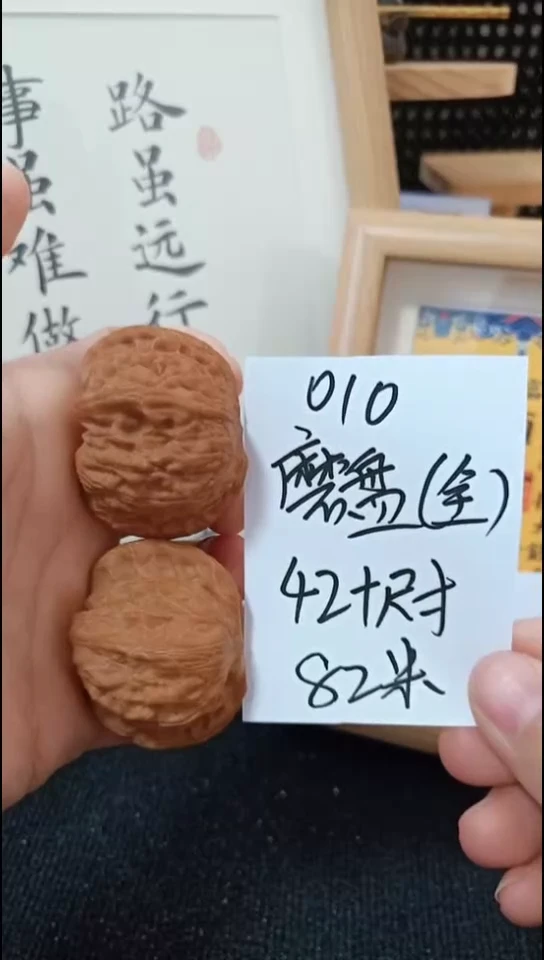 路虽远行
事虽难做
010
磨盘(全)
42+尺寸
82米